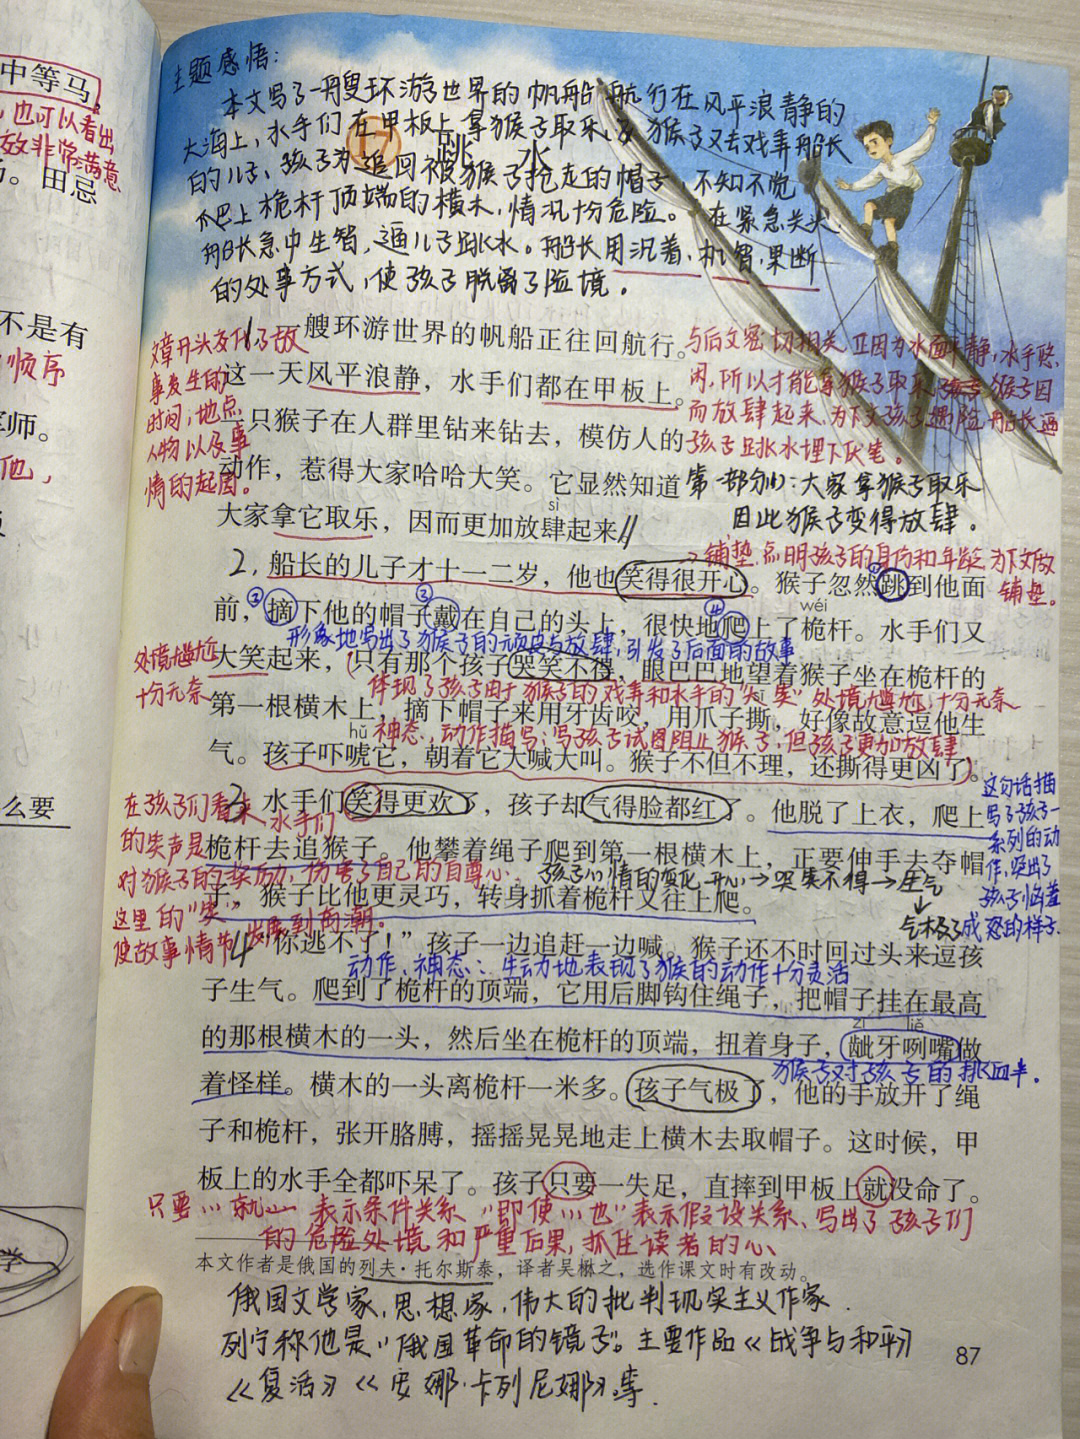 中等马
也可以看出
效非常满意
。田忌
不是有
顺序
军师。
他，
么要
学
主题感悟：
本文写了一艘环游世界的帆船航行在风平浪静的
大海上，水手们在甲板上拿猴子取乐，猴子又去戏弄船长
的儿子，孩子为追回被猴子抢走的帽子，不知不觉
爬上桅杆顶端的横木，情况十分危险。在紧急关头
船长急中生智，逼儿子跳水。船长用沉着，机智，果断
的处事方式，使孩子脱离了险境。
17 跳水
1 一艘环游世界的帆船正往回航行。
这一天风平浪静，水手们都在甲板上。
一只猴子在人群里钻来钻去，模仿人的
动作，惹得大家哈哈大笑。它显然知道
sì
大家拿它取乐，因而更加放肆起来。
文章开头交代了故
事发生的
时间，地点
人物以及事
情的起因。
与后文密切相关 正因为水面平静，水手悠
闲，所以才能拿猴子取乐，猴子因
而放肆起来，为下文孩子遇险 船长逼
孩子跳水埋下伏笔。
第一部分(1)：大家拿猴子取乐
因此猴子变得放肆。
铺垫，点明孩子的身份和年龄 为下文做
铺垫。
2，船长的儿子才十一二岁，他也笑得很开心。猴子忽然跳到他面
wéi
前，摘下他的帽子戴在自己的头上，很快地爬上了桅杆。水手们又
① ② ③ ④
形象地写出了猴子的顽皮与放肆，引发了后面的故事
大笑起来，只有那个孩子哭笑不得，眼巴巴地望着猴子坐在桅杆的
处境尴尬
十分无奈
体现了孩子由于猴子的戏弄和水手的“笑” 处境尴尬，十分无奈
sī
第一根横木上，摘下帽子来用牙齿咬，用爪子撕，好像故意逗他生
hǔ
神态，动作描写：写孩子试图阻止猴子，但孩子更加放肆
气。孩子吓唬它，朝着它大喊大叫。猴子不但不理，还撕得更凶了。
3，水手们笑得更欢了，孩子却气得脸都红了。他脱了上衣，爬上
桅杆去追猴子。他攀着绳子爬到第一根横木上，正要伸手去夺帽
子，猴子比他更灵巧，转身抓着桅杆又往上爬。
在孩子们看来，水手们
的笑声是
对猴子的鼓励，伤害了自己的自尊心.
这里的“笑”
使故事情节发展到高潮。
孩子心情的变化 开心→哭笑不得→生气
↓
气极了
这句话描
写了孩子一
系列的动
作，突出了
孩子恼羞
成怒的样子.
4 “你逃不了！”孩子一边追赶一边喊。猴子还不时回过头来逗孩
动作、神态：生动地表现了猴的动作十分灵活
子生气。爬到了桅杆的顶端，它用后脚钩住绳子，把帽子挂在最高
zī liě
的那根横木的一头，然后坐在桅杆的顶端，扭着身子，龇牙咧嘴做
猴子对孩子的挑衅.
着怪样。横木的一头离桅杆一米多。孩子气极了，他的手放开了绳
子和桅杆，张开胳膊，摇摇晃晃地走上横木去取帽子。这时候，甲
板上的水手全都吓呆了。孩子只要一失足，直摔到甲板上就没命了。
只要…就… 表示条件关系 “即使…也”表示假设关系、写出了孩子们
的危险处境和严重后果，抓住读者的心、
本文作者是俄国的列夫·托尔斯泰，译者吴楙之，选作课文时有改动。
俄国文学家，思想家，伟大的批判现实主义作家.
列宁称他是“俄国革命的镜子”。主要作品《战争与和平》
《复活》《安娜·卡列尼娜》等.
87